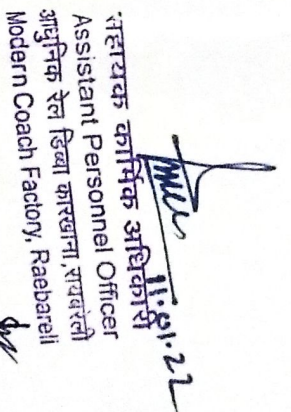 11.01.22
सहायक कार्मिक अधिकारी
Assistant Personnel Officer
आधुनिक रेल डिब्बा कारखाना, रायबरेली
Modern Coach Factory, Raebareli